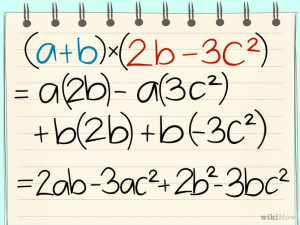 (a+b)×(2b-3c²)
= a(2b)- a(3c²)
+b(2b)+b(-3c²)
=2ab-3ac²+2b²-3bc²
wikiHow